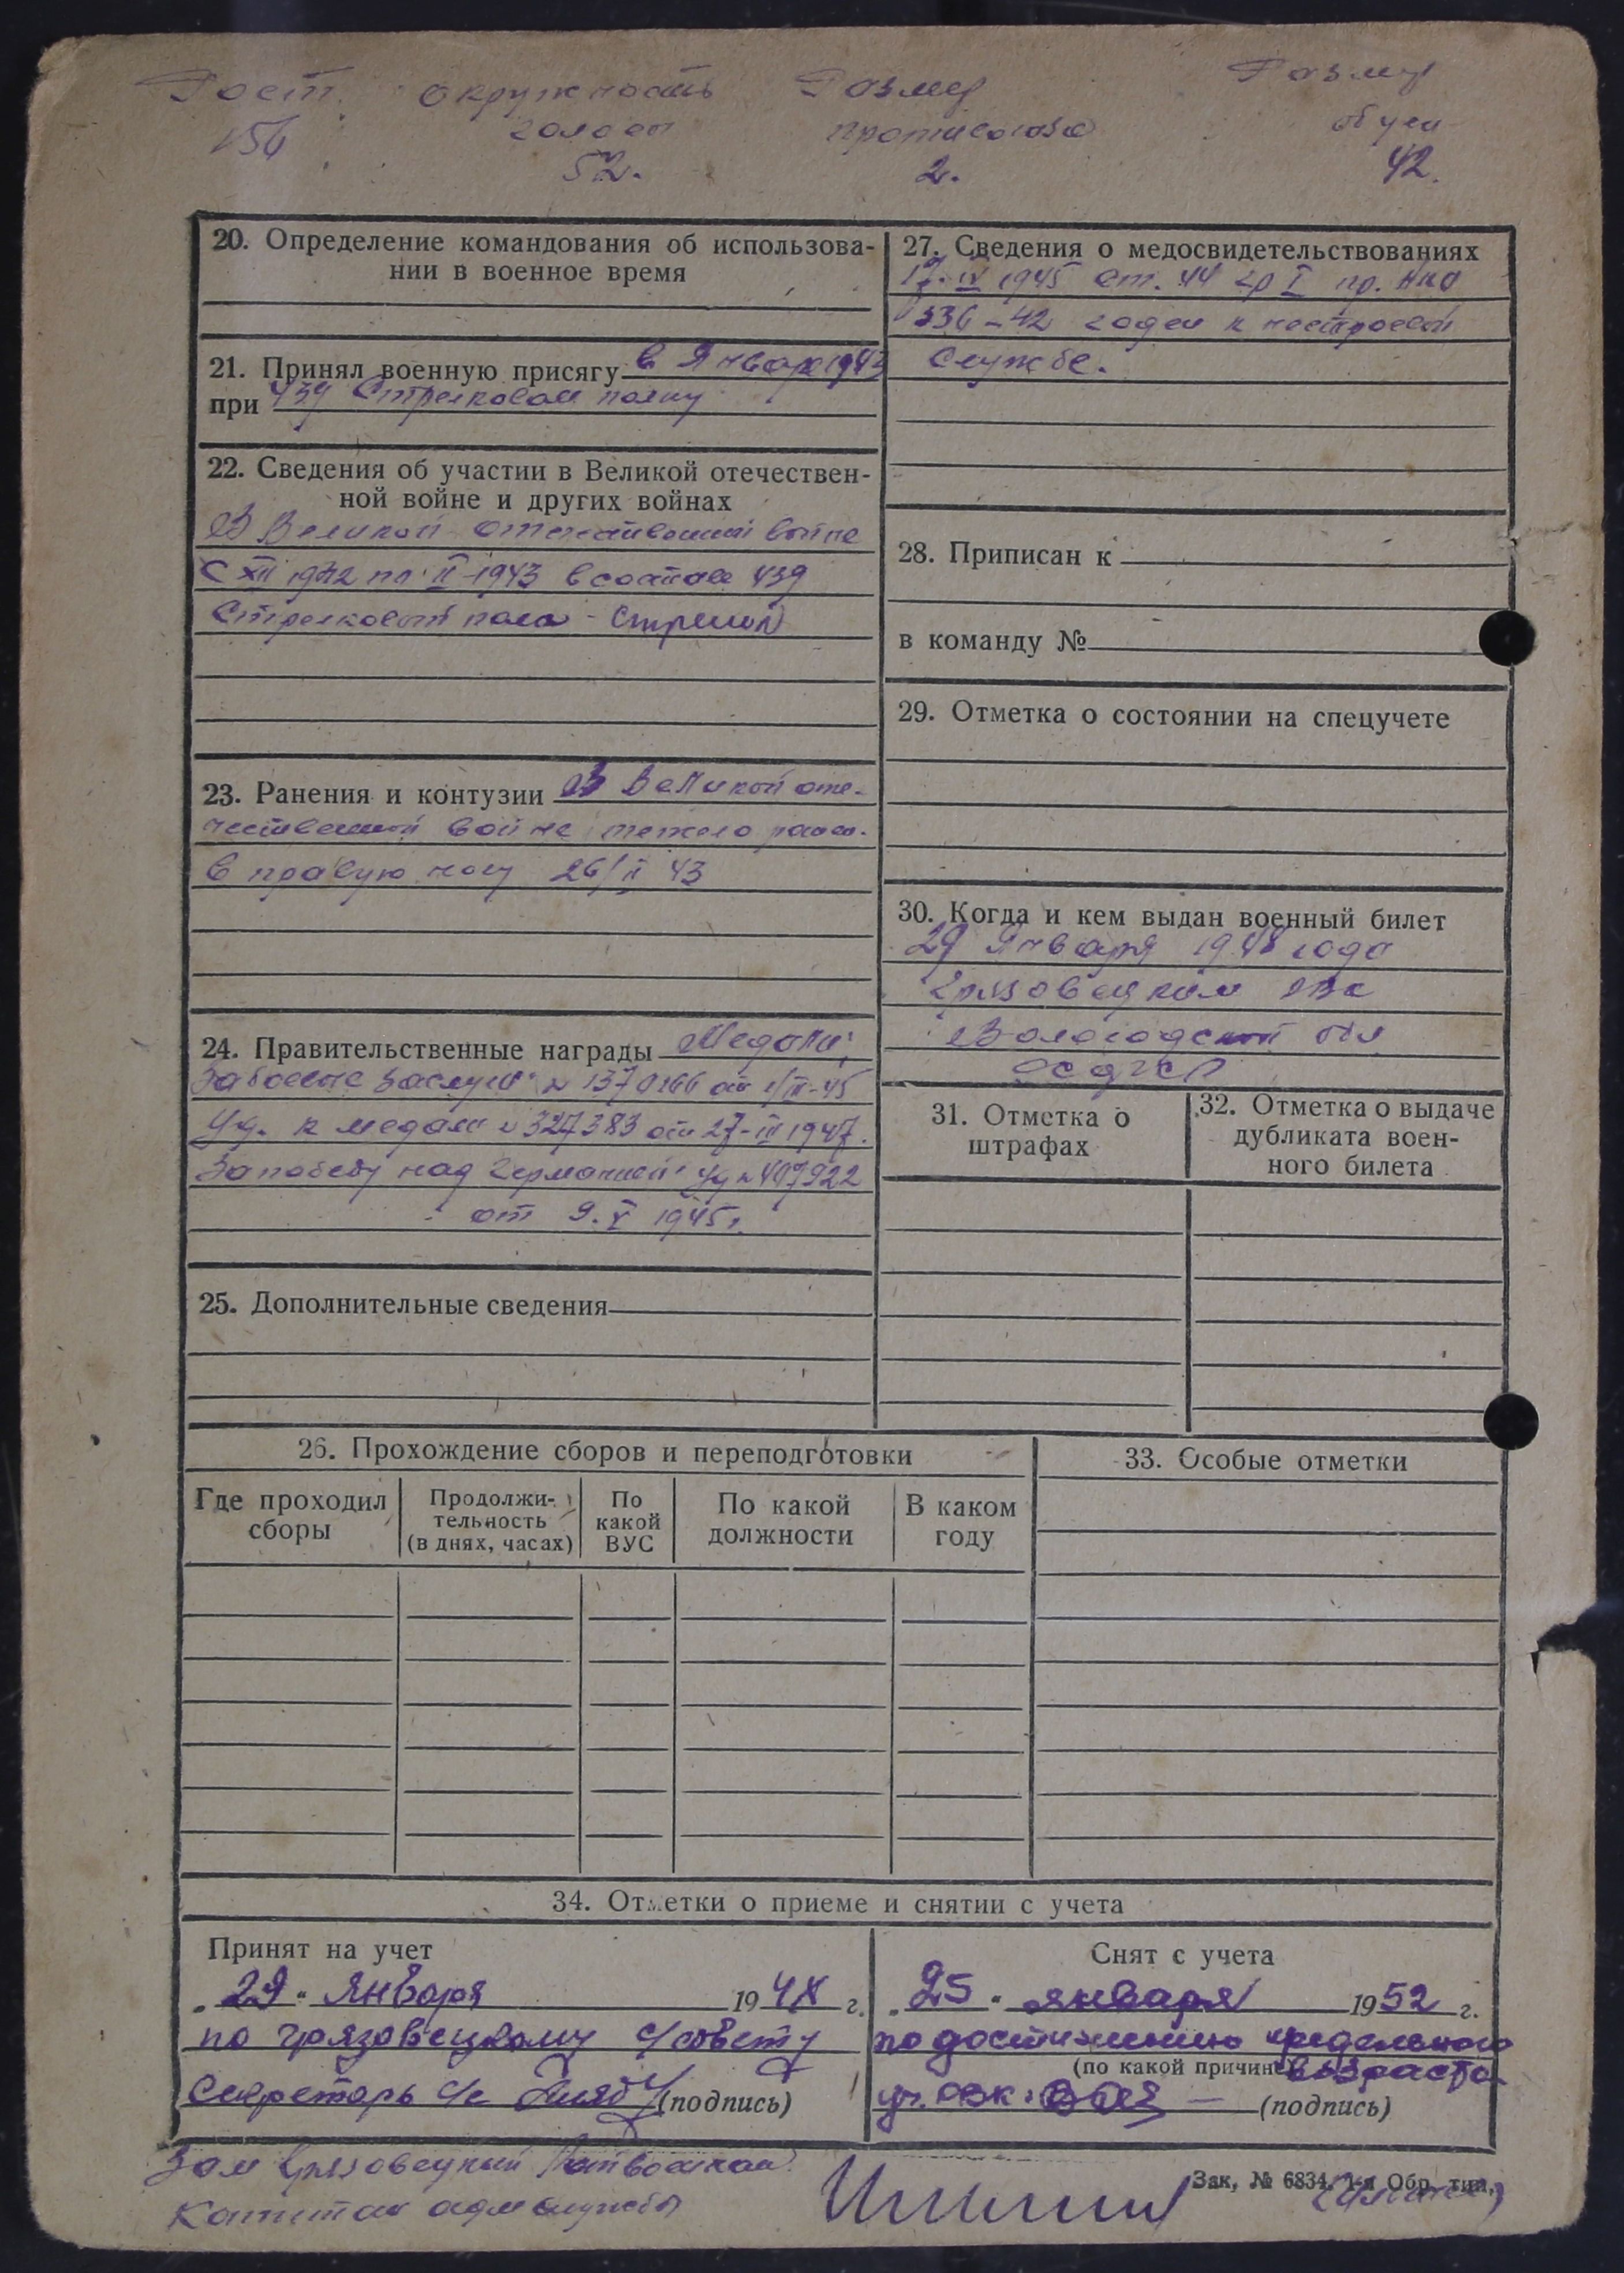 Рост окружность Размер Размер
156 головы противогаза обуви
52. 2. 42.
20. Определение командования об использова-
нии в военное время
21. Принял военную присягу в Январе 1943
при 439 Стрелковом полку
22. Сведения об участии в Великой отечествен-
ной войне и других войнах
В Великой отечественной войне
с XII 1942 по II-1943 в составе 439
Стрелковый полк - Стрелок
23. Ранения и контузии В Великой оте-
чественной войне тяжело ранен.
в правую ногу 26/II 43
24. Правительственные награды Медали;
За боевые заслуги № 1370266 от
Уд. к медали № 327383 от 27-III 1947.
За победу над Германией уд № 407922
от 9.V 1945г.
25. Дополнительные сведения
26. Прохождение сборов и переподготовки
Где проходил сборы
Продолжи-
тельность
(в днях, часах)
По какой ВУС
По какой должности
В каком году
27. Сведения о медосвидетельствованиях
17-IV 1945 ст. 44 гр I пр. НКО
336-42 годен к нестроевой
службе.
28. Приписан к
в команду №
29. Отметка о состоянии на спецучете
30. Когда и кем выдан военный билет
29 Января 1948 года
Грязовецким РВК
Вологодской обл
РСФСР
31. Отметка о
штрафах
32. Отметка о выдаче
дубликата воен-
ного билета
33. Особые отметки
34. Отметки о приеме и снятии с учета
Принят на учет
„29“ Января 1948 г.
по Грязовецкому с/совету
Секретарь с/с (подпись)
Снят с учета
„25“ января 1952 г.
по достижению предельного
(по какой причине) возраста
(подпись)
Зам Грязовецкий
Капитан адмслужбы
Зак. № 6834. 1-я Обр. тип.